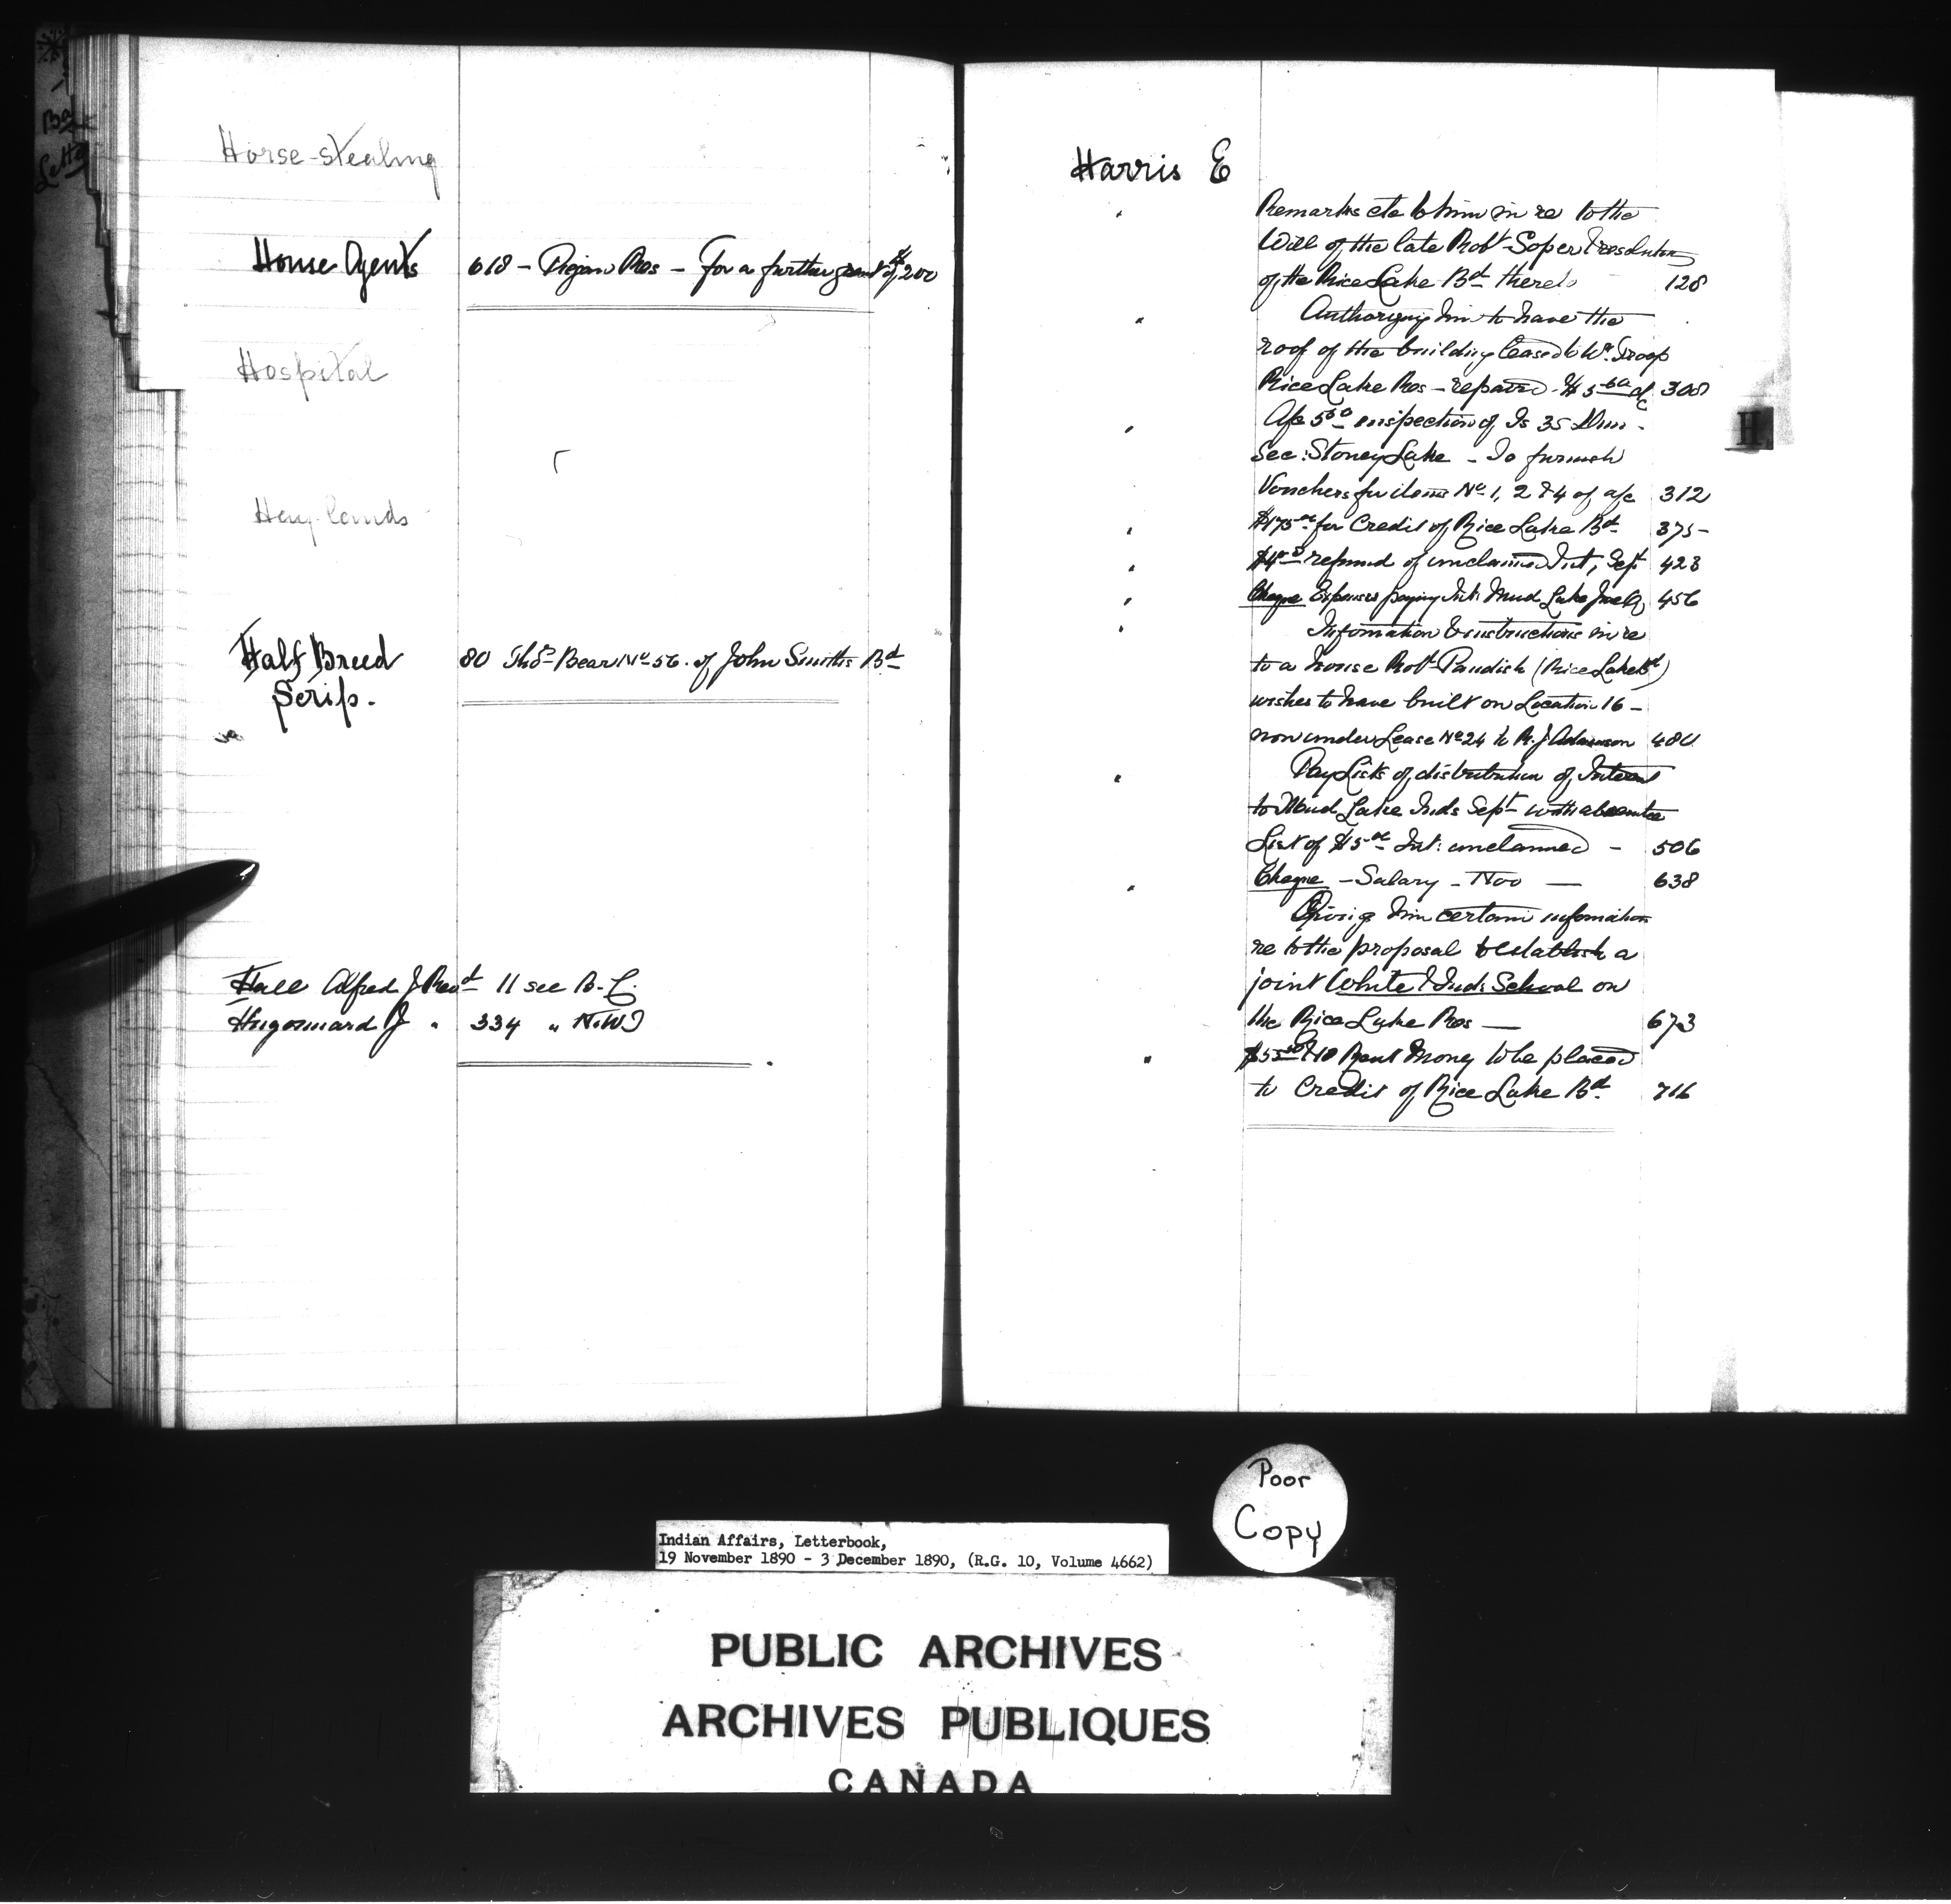 Horse-stealing
House Agent's 618 - Piegan Res - For a further grant of $200
Hospital
Hay-lands
Half Breed 80 Thos Bear No 56. of John Smith's Bd
Scrip.
Hall Alfred J Revd 11 see B.C.
Hugonnard J " 334 " N.W.T
Harris E
" Remarks etc to him in re to the
Will of the late Robt Soper & resolution
of the Rice Lake Bd thereto 128
" Authorizing him to have the
roof of the building leased to
Rice Lake Res - repaired - 308
" A/c inspection of Is 35
See: Stoney Lake - To furnish
Vouchers for items No 1, 2 & 4 of a/c 312
" for Credit of Rice Lake Bd 375-
" refund of unclaimed Int, Sept 423
" Cheque Expenses paying Int: Mud Lake Inds 456
" Information & instructions in re
to a house Robt Paudish (Rice Lake Bd)
wishes to have built on Location 16 -
now under Lease No 24 to R. J Adamson
" Pay Lists of distribution of Interest
to Mud Lake Inds Sept with absentee
List of $5 Int: unclaimed - 506
" Cheque - Salary - Nov — 638
Giving him certain information
re to the proposal to establish a
joint White & Ind: School on
the Rice Lake Res — 673
" Rent Money to be placed
to Credit of Rice Lake Bd. 716
H
Poor
Copy
Indian Affairs, Letterbook,
19 November 1890 - 3 December 1890, (R.G. 10, Volume 4662)
PUBLIC ARCHIVES
ARCHIVES PUBLIQUES
CANADA